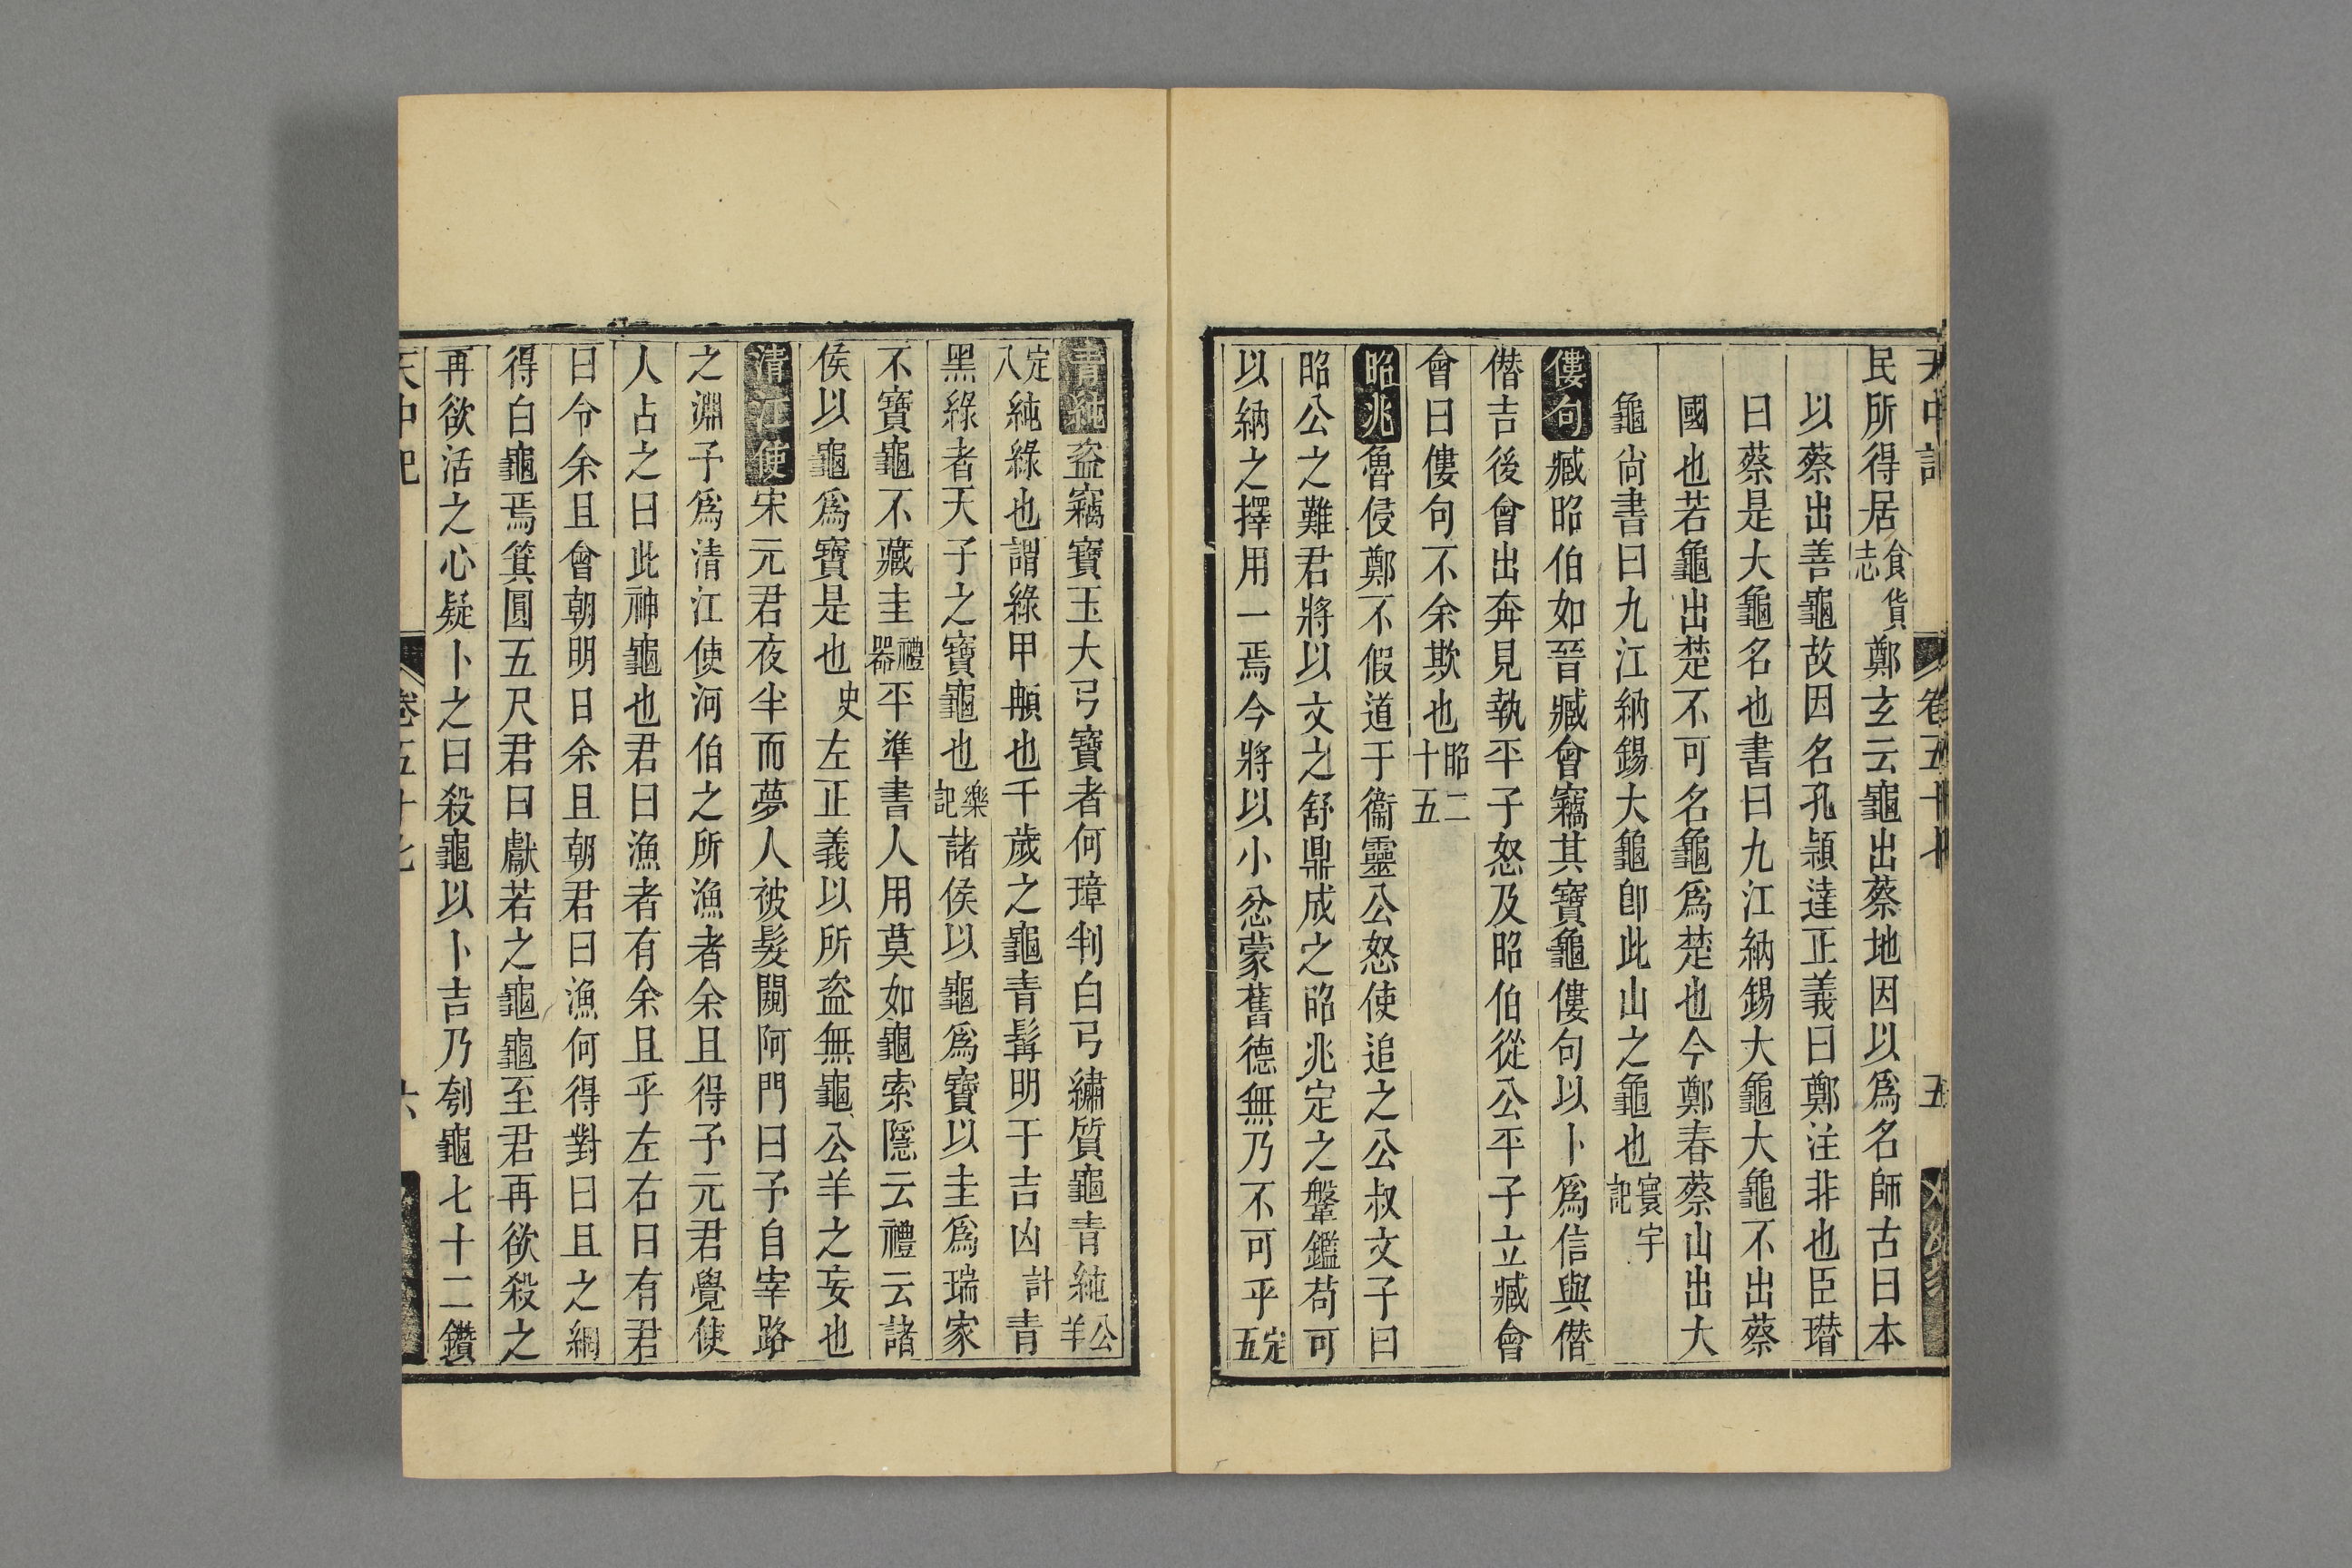 天中記 卷五十七 五
民所得居食貨志鄭玄云龜出蔡地因以爲名師古曰本
以蔡出善龜故因名孔穎達正義曰鄭注非也臣瓚
曰蔡是大龜名也書曰九江納錫大龜大龜不出蔡
國也若龜出楚不可名龜爲楚也今鄭春蔡山出大
龜尚書曰九江納錫大龜卽此山之龜也寰宇記
僂句臧昭伯如晉臧會竊其寶龜僂句以卜爲信與僭
僭吉後會出奔見執平子怒及昭伯從公平子立臧會
會曰僂句不余欺也昭二十五
昭兆魯侵鄭不假道于衞靈公怒使追之公叔文子曰
昭公之難君將以文之舒鼎成之昭兆定之鞶鑑苟可
以納之擇用一焉今將以小忿蒙舊德無乃不可乎定五
青純盜竊寶玉大弓寶者何璋判白弓繡質龜青純公羊
定八純緣也謂緣甲䫇也千歲之龜青髯明于吉凶計青
黑緣者天子之寶龜也樂記諸侯以龜爲寶以圭爲瑞家
不寶龜不藏圭禮器平準書人用莫如龜索隱云禮云諸
侯以龜爲寶是也史左正義以所盜無龜公羊之妄也
清江使宋元君夜半而夢人被髮闚阿門曰予自宰路
之淵予爲清江使河伯之所漁者余且得予元君覺使
人占之曰此神龜也君曰漁者有余且乎左右曰有君
曰令余且會朝明日余且朝君曰漁何得對曰且之網
得白龜焉箕圓五尺君曰獻若之龜龜至君再欲殺之
再欲活之心疑卜之曰殺龜以卜吉乃刳龜七十二鑽
天中記 卷五十七 六